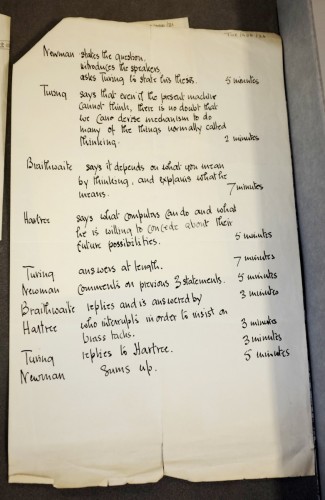 Newman states the question.
introduces the speakers
asks Turing to state his thesis. 5 minutes
Turing says that even if the present machine
cannot think, there is no doubt that
we can devise mechanism to do
many of the things normally called
thinking. 2 minutes
Braithwaite says it depends on what you mean
by thinking, and explains what he
means. 7 minutes
Hartree says what computers can do and what
he is willing to concede about their
future possibilities. 5 minutes
Turing answers at length. 7 minutes
Newman comments on previous 3 statements. 5 minutes
Braithwaite replies and is answered by 3 minutes
Hartree who interrupts in order to insist on
brass tacks. 3 minutes
Turing replies to Hartree. 3 minutes
Newman Sums up. 5 minutes